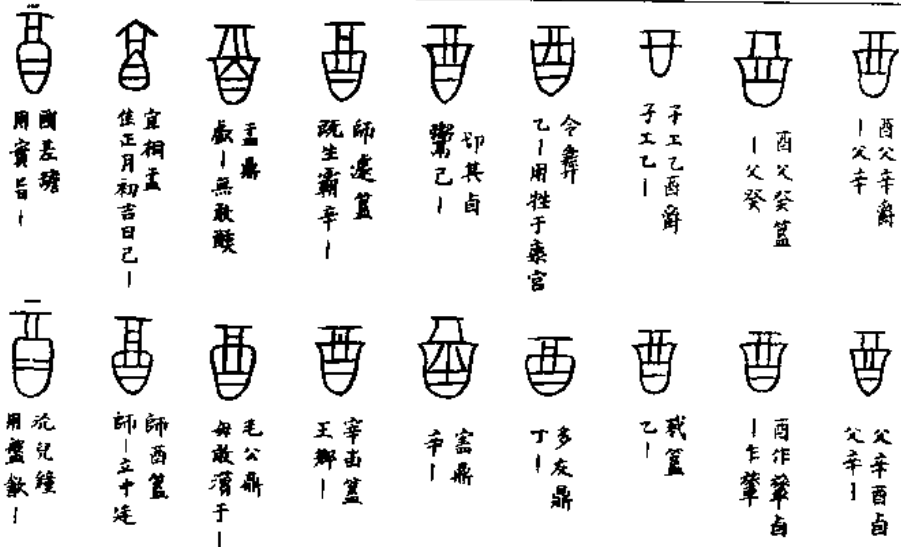 酉父辛爵
丨父辛
酉父癸簋
丨父癸
子工乙酉爵
子工乙丨
令彝
乙丨用牲于康宮
切其卣
己丨
師遽簋
既生霸辛丨
盂鼎
丨無敢
宜桐盂
隹正月初吉日己丨
國差𦉜
用實旨丨
父辛酉卣
父辛丨
酉作卣
丨乍
簋
乙丨
多友鼎
丁丨
鼎
辛丨
宰甶簋
王鄉丨
毛公鼎
毋敢湎于丨
師酉簋
師丨立中廷
沇兒鐘
用盤飲丨